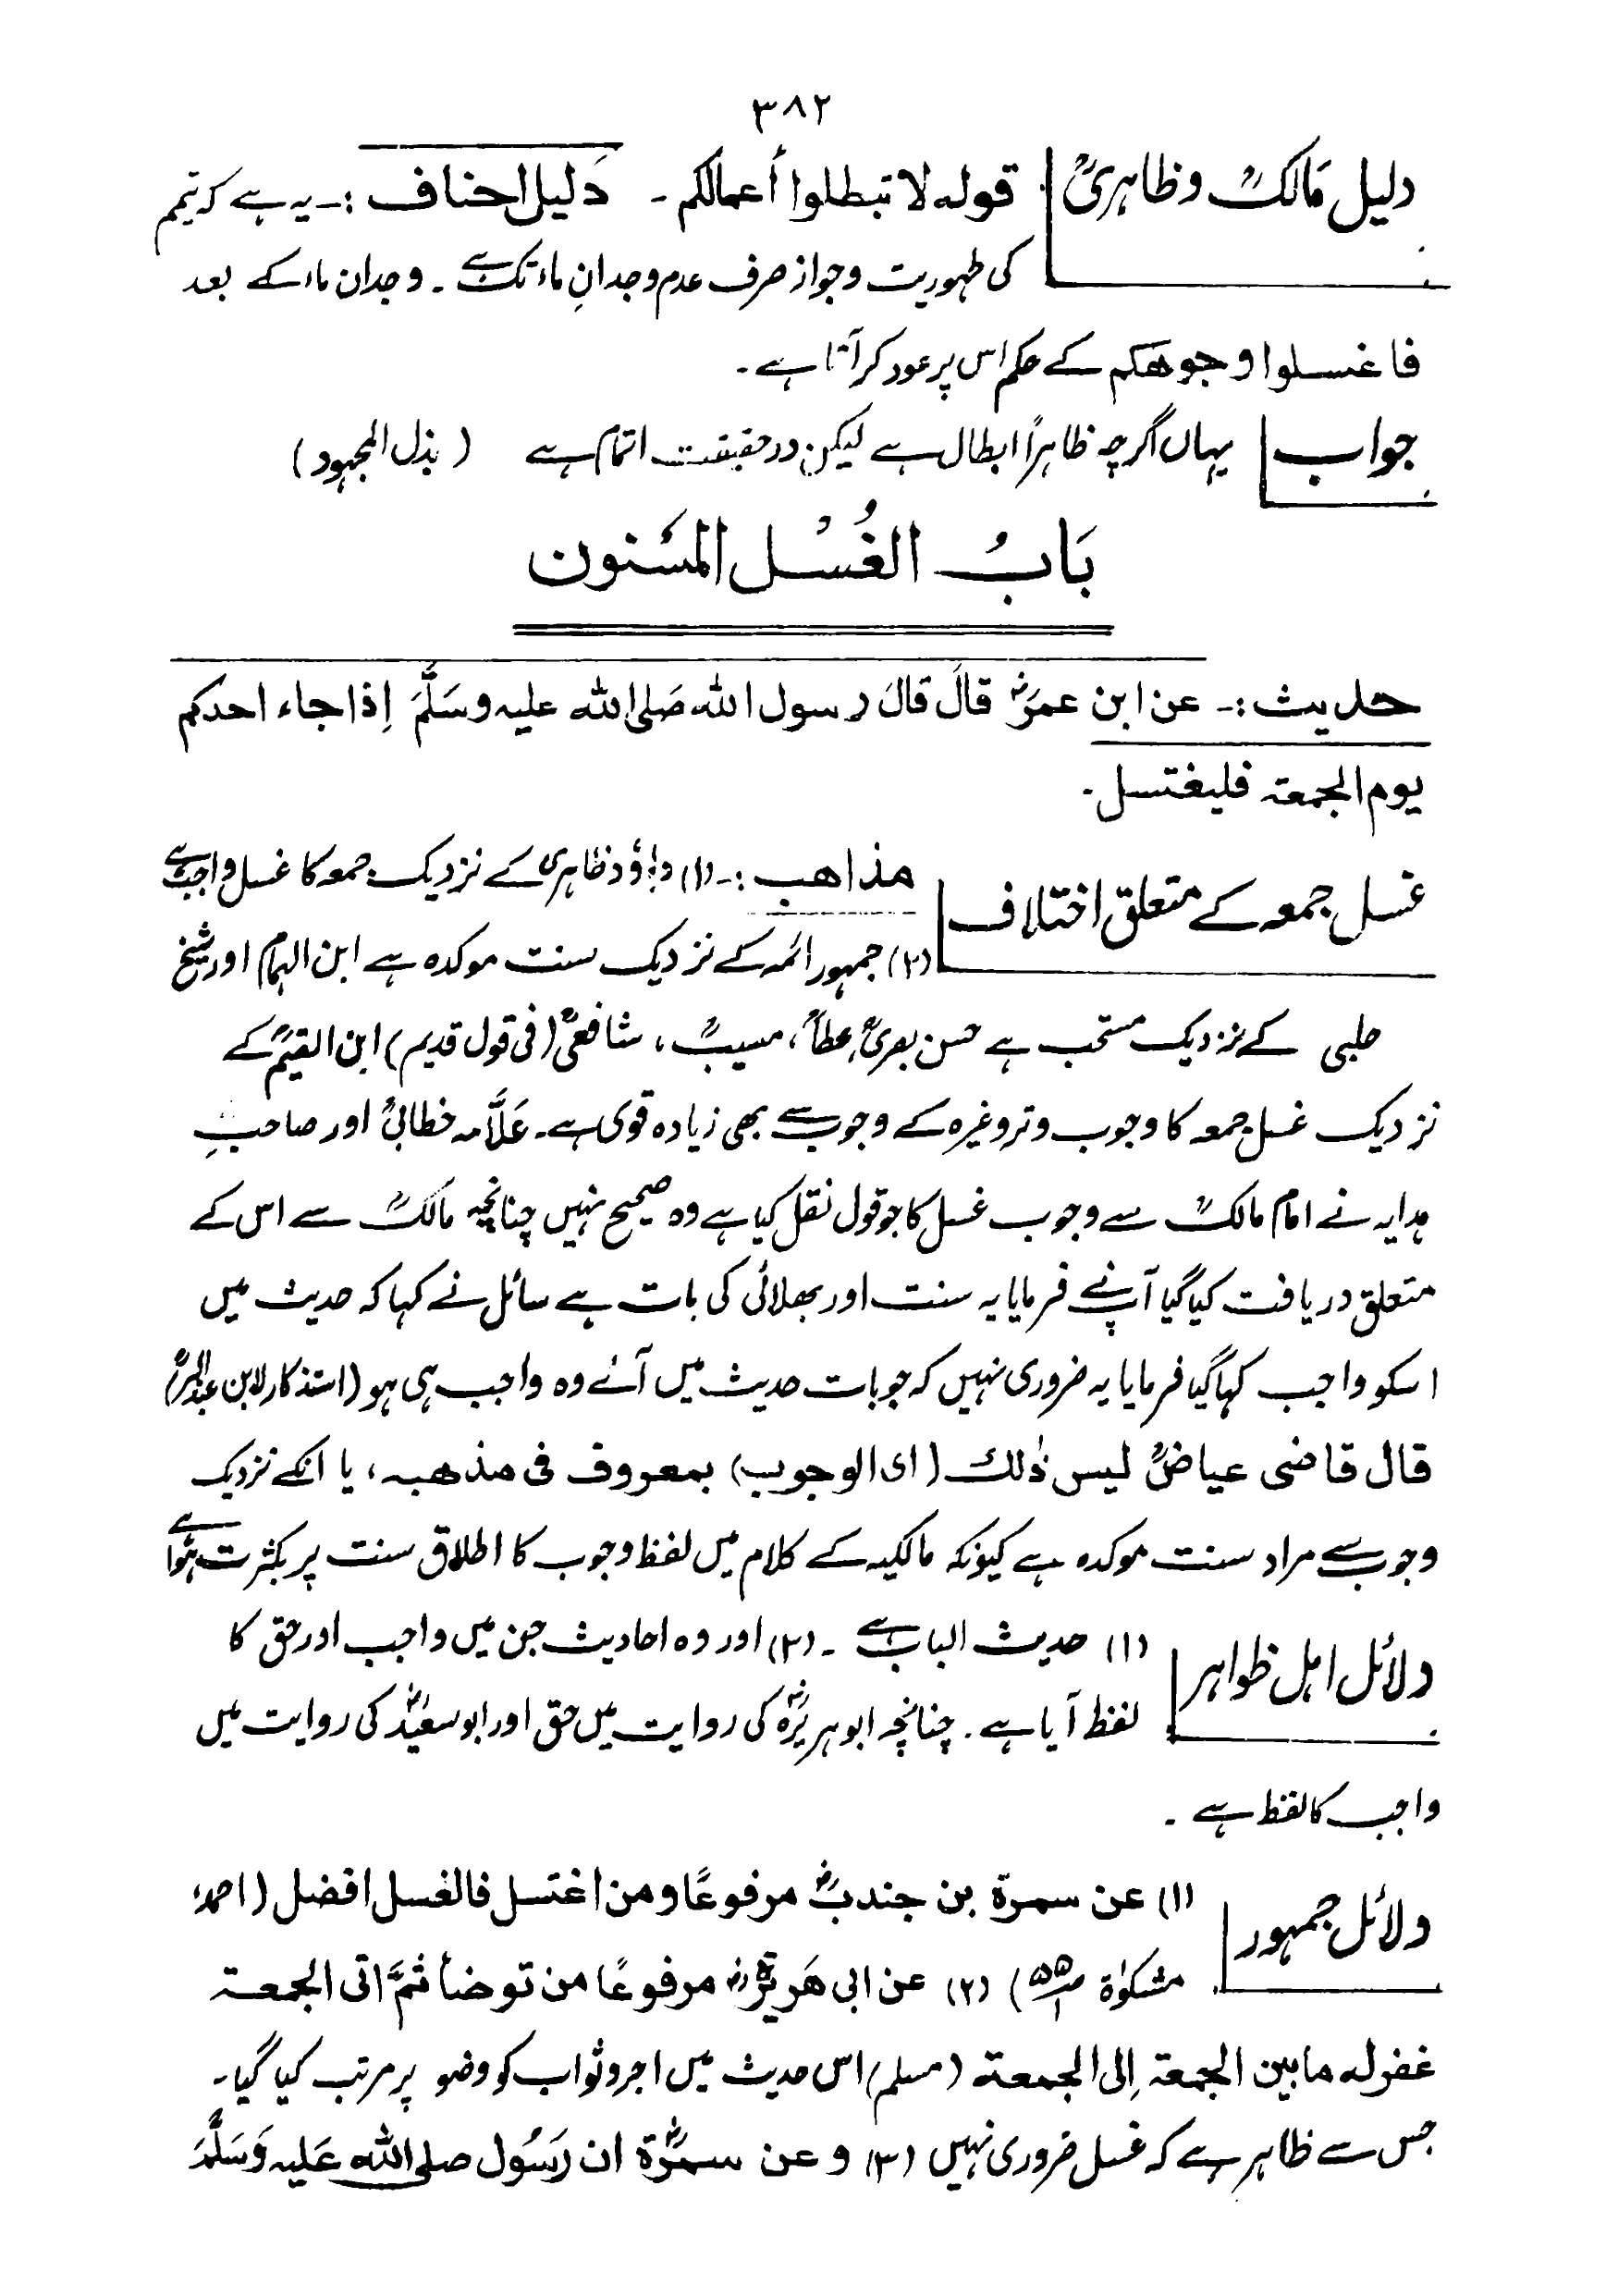 ۳۸۲
دلیل مالکؒ وظاہریؒ قولہ لا تبطلوا أعمالکم۔ دلیل احناف :۔ یہ ہے کہ تیمم
کی طہوریت وجواز صرف عدم وجدانِ ماء تک ہے۔ وجدان ماء کے بعد
فاغسلوا وجوھکم کے حکم اس پر عود کر آتا ہے۔
جواب یہاں اگرچہ ظاہراً ابطال ہے لیکن درحقیقت اتمام ہے (بذل المجہود)
بَابُ الغُسْل المَسْنون
حدیث :۔ عن ابن عمرؓ قالَ قالَ رسول اللہ صَلی اللہ علیہ وسَلَّمَ إذا جاء احدکم
یوم الجمعۃ فلیغتسل۔
غسل جمعہ کے متعلق اختلاف مذاھب :۔ (۱) داؤد ظاہری کے نزدیک جمعہ کا غسل واجب ہے
(۲) جمہور ائمہ کے نزدیک سنت موکدہ ہے ابن الہمام اور شیخ
حلبی کے نزدیک مستحب ہے حسن بصریؒ، عطاءؒ، مسیبؒ، شافعیؒ (فی قول قدیم) ابن القیمؒ کے
نزدیک غسل جمعہ کا وجوب وتر وغیرہ کے وجوب سے بھی زیادہ قوی ہے۔ عَلَّامہ خطابیؒ اور صاحبِ
ہدایہ نے امام مالکؒ سے وجوب غسل کا جو قول نقل کیا ہے وہ صحیح نہیں چنانچہ مالکؒ سے اس کے
متعلق دریافت کیا گیا آپ نے فرمایا یہ سنت اور بھلائی کی بات ہے سائل نے کہا کہ حدیث میں
اسکو واجب کہا گیا فرمایا یہ ضروری نہیں کہ جو بات حدیث میں آئے وہ واجب ہی ہو (استذکار لابن عبدالبرؒ)
قال قاضی عیاضؒ لیس ذٰلک (ای الوجوب) بمعروف فی مذھبہ، یا انکے نزدیک
وجوب سے مراد سنت موکدہ ہے کیونکہ مالکیہ کے کلام میں لفظ وجوب کا اطلاق سنت پر بکثرت ہوا ہے
دلائل اہل ظواہر (۱) حدیث الباب ہے ۔ (۲) اور وہ احادیث جن میں واجب اور حق کا
لفظ آیا ہے۔ چنانچہ ابوہریرہؓ کی روایت میں حق اور ابوسعیدؓ کی روایت میں
واجب کا لفظ ہے ۔
دلائل جمہور (۱) عن سمرۃ بن جندبؓ مرفوعًا ومن اغتسل فالغسل افضل (احمد،
مشکوٰۃ ص۵۵/۱) (۲) عن ابی ھَریرۃؓ مرفوعًا من توضأ ثمَّ اتی الجمعۃ
غفرلہ مابین الجمعۃ إلی الجمعۃ (مسلم) اس حدیث میں اجروثواب کو وضو پر مرتب کیا گیا۔
جس سے ظاہر ہے کہ غسل ضروری نہیں (۳) وعن سمرۃؓ ان رَسُول صلی اللہ عَلیہ وَسَلَّمَ